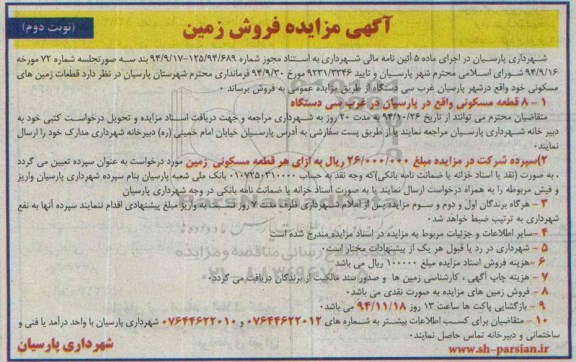 آگهی مزایده فروش زمین
(نوبت دوم)
شهرداری پارسیان در اجرای ماده ۵ آئین نامه مالی شهرداری به استناد مجوز شماره ۱۲۵/۹۴/۶۸۹-۹۴/۹/۱۷ بند سه صورتجلسه شماره ۷۲ مورخه
۹۴/۹/۱۶ شورای اسلامی محترم شهر پارسیان و تایید ۹۲۳۱/۳۳۴۶ مورخ ۹۴/۹/۳۰ فرمانداری محترم شهرستان پارسیان در نظر دارد قطعات زمین های
مسکونی خود واقع درشهر پارسیان غرب سی دستگاه از طریق مزایده عمومی به فروش برساند
۱ - ۸ قطعه مسکونی واقع در پارسیان در غرب سی دستگاه
متقاضیان محترم می توانند از تاریخ ۹۴/۱۰/۲۶ به مدت ۲۰ روز به شهرداری مراجعه و جهت دریافت اسناد مزایده و تحویل درخواست کتبی خود به
دبیر خانه شهرداری پارسیان مراجعه نمایند یا از طریق پست سفارشی به آدرس پارسیان خیابان امام خمینی (ره) دبیرخانه شهرداری مدارک خود را ارسال
نمایند۰
۲)سپرده شرکت در مزایده مبلغ ۲۶/۰۰۰/۰۰۰ ریال به ازای هر قطعه مسکونی زمین مورد درخواست به عنوان سپرده تعیین می گردد
۰ به صورت (نقد یا اسناد خزانه یا ضمانت نامه بانکی)که وجه نقد به حساب ۰۱۰۷۲۵۰۳۱۰۰۰۰ بانک ملی شعبه پارسیان بنام سپرده شهرداری پارسیان واریز
و فیش مربوطه را به همراه درخواست ارسال نمایند یا به صورت اسناد خزانه یا ضمانت نامه بانکی در وجه شهرداری پارسیان
۳ - هرگاه برندگان اول و دوم و سوم مزایده پس از اعلام شهرداری ظرف مدت ۷ روز نسبت به واریز مبلغ پیشنهادی اقدام ننمایند سپرده آنها به نفع
شهرداری به ترتیب ضبط خواهد شد۰
۴ -سایر اطلاعات و جزئیات مربوط به مزایده در اسناد مزایده مندرج شده است
۵ - شهرداری در رد یا قبول هر یک از پیشنهادات مختار است۰
۶ -هزینه فروش اسناد مزایده مبلغ ۱۰۰۰۰۰ ریال می باشد۰
۷ - هزینه چاپ آگهی ، کارشناسی زمین ها و صدور سند مالکیت از برندگان دریافت می گردد۰
۸ - فروش زمین های مزایده به صورت نقدی می باشد۰
۹ - بازگشایی پاکت ها ساعت ۱۳ روز ۹۴/۱۱/۱۸ می باشد۰
۱۰ - متقاضیان برای کسب اطلاعات بیشتر به شماره های ۰۷۶۴۴۶۲۲۰۱۲ و ۰۷۶۴۴۶۲۲۰۱۰ شهرداری پارسیان با واحد درآمد یا فنی و
ساختمانی و دبیرخانه تماس حاصل نمایند۰
www.sh-parsian.ir
شهرداری پارسیان